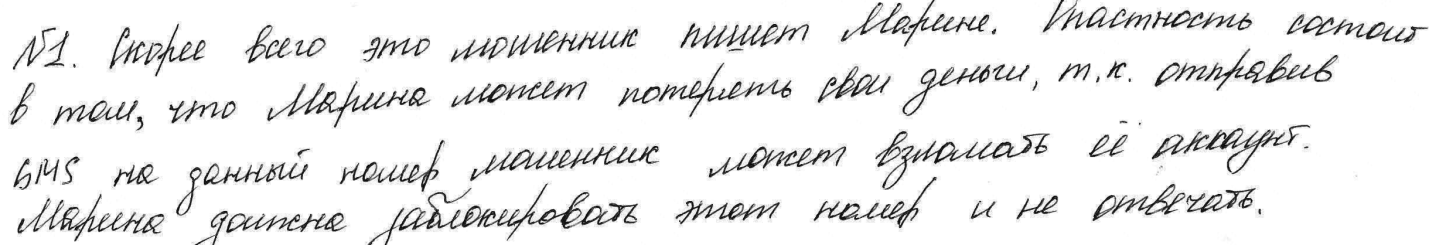 №1. Скорее всего это мошенник пишет Марине. Опастность состоит
в том, что Марина может потерять свои деньги, т.к. отправив
SMS на данный номер мошенник может взломать её аккаунт.
Марина должна заблокировать этот номер и не отвечать.